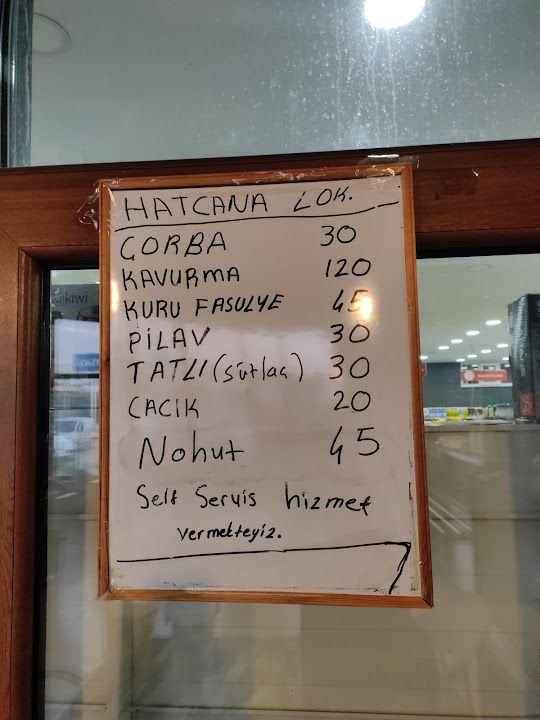 HATCANA LOK.
ÇORBA 30
KAVURMA 120
KURU FASULYE 45
PİLAV 30
TATLI (sütlaç) 30
CACIK 20
Nohut 45
Self Servis hizmet
vermekteyiz.
kiwi